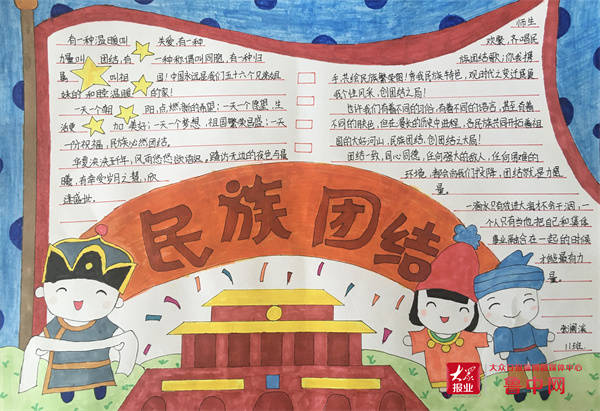 有一种温暖叫 关爱,有一种
力量叫 团结,有一种称谓叫同胞,有一种归
属 叫祖 国!中国永远是我们五十六个兄弟姐
妹的和睦温暖 的家!
一天一个朝 阳,点燃新的希望;一天一个愿望,生
活更 加美好;一天一个梦想,祖国繁荣昌盛;一天
一份祝福,民族必然团结。
华夏泱泱五千年,风雨悠悠
曦,有幸受岁月之 欣
逢盛世。
师生
欢聚,齐唱民
族团结歌;你我携
手,共绘民族繁荣图!
创团结之局!
也许我们有着不同的习俗,有着不同的语言,甚至有着
不同的肤色,但在漫长的历史中进程,各民族共同开拓着祖
国的大好河山,民族团结,创团结之大局!
团结一致,同心同德,任何强大的敌人,任何困难的
环境,都会向我们投降,团结就是力量
量。
一滴水只有放进大海才不会干涸,一
个人只有当他把自己和集体
事业融合在一起的时候
才能最有力
量。
民族团结
11班
大众报业
大众日报
鲁中网